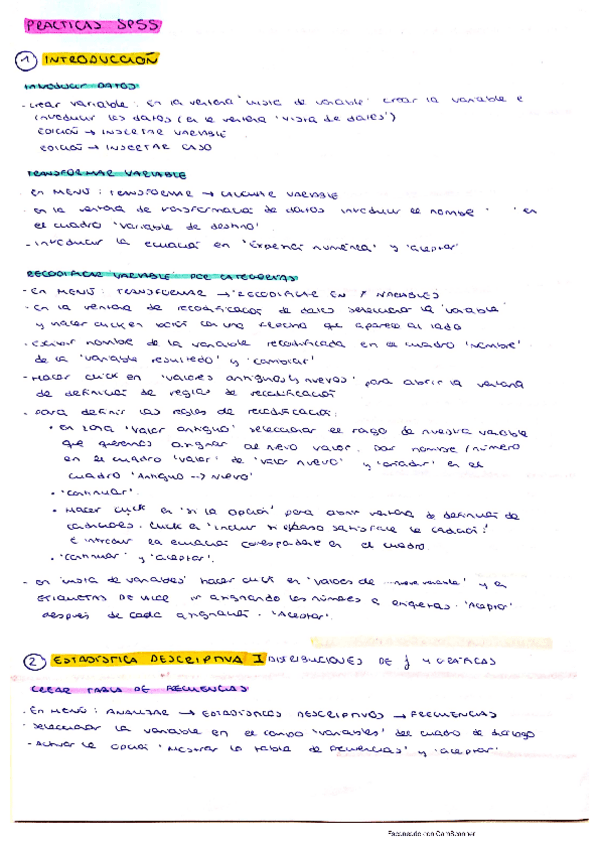 PRACTICAS SPSS
1 INTRODUCCIÓN
INTRODUCIR DATOS
- Crear variable: En la ventana 'vista de variable' crear la variable e
introducir los datos (en la ventana 'vista de datos')
EDICIÓN → INSERTAR VARIABLE
EDICIÓN → INSERTAR CASO
TRANSFORMAR VARIABLE
- En MENÚ: TRANSFORMAR → CALCULAR VARIABLE
- en la ventana de transformación de datos introducir el nombre ' ' en
el cuadro 'variable de destino'.
- introducir la ecuación en 'Expresión numérica' y 'aceptar'
RECODIFICAR VARIABLE POR CATEGORÍAS
- En MENÚ: TRANSFORMAR → 'RECODIFICAR EN ≠ VARIABLES
- En la ventana de recodificación de datos seleccionar la 'variable'
y hacer click en botón con una flecha que aparece al lado
- escribir nombre de la variable recodificada en el cuadro 'nombre'
de la 'variable resultado' y 'cambiar'
- Hacer click en 'valores antiguos y nuevos' para abrir la ventana
de definición de reglas de recodificación
- para definir las reglas de recodificación:
• en zona 'valor antiguo' seleccionar el rango de nuestra variable
que queremos asignar al nevo valor. Dar nombre/número
en el cuadro 'valor' de 'valor nuevo' y 'añadir' en el
cuadro 'Antiguo --> nuevo'
• 'continuar'.
• Hacer click en 'si la opción' para abrir ventana de definición de
condiciones. Click en 'Incluir si el caso satisface la condición:'
E introducir la ecuación correspondiente en el cuadro
• 'continuar' y 'aceptar'.
- en 'vista de variables' hacer click en 'valores de nueva variable' y en
ETIQUETAS DE VALOR ir asignando los números a etiquetas. 'Aceptar'
después de cada asignación. 'Aceptar'.
2 ESTADÍSTICA DESCRIPTIVA I DISTRIBUCIONES DE f Y GRÁFICAS
CREAR TABLA DE FRECUENCIAS
- En MENÚ: ANALIZAR → ESTADÍSTICOS DESCRIPTIVOS → FRECUENCIAS
- seleccionar la variable en el campo 'variables' del cuadro de diálogo
- Activar la opción 'Mostrar la tabla de frecuencias' y 'aceptar'
Escaneado con CamScanner